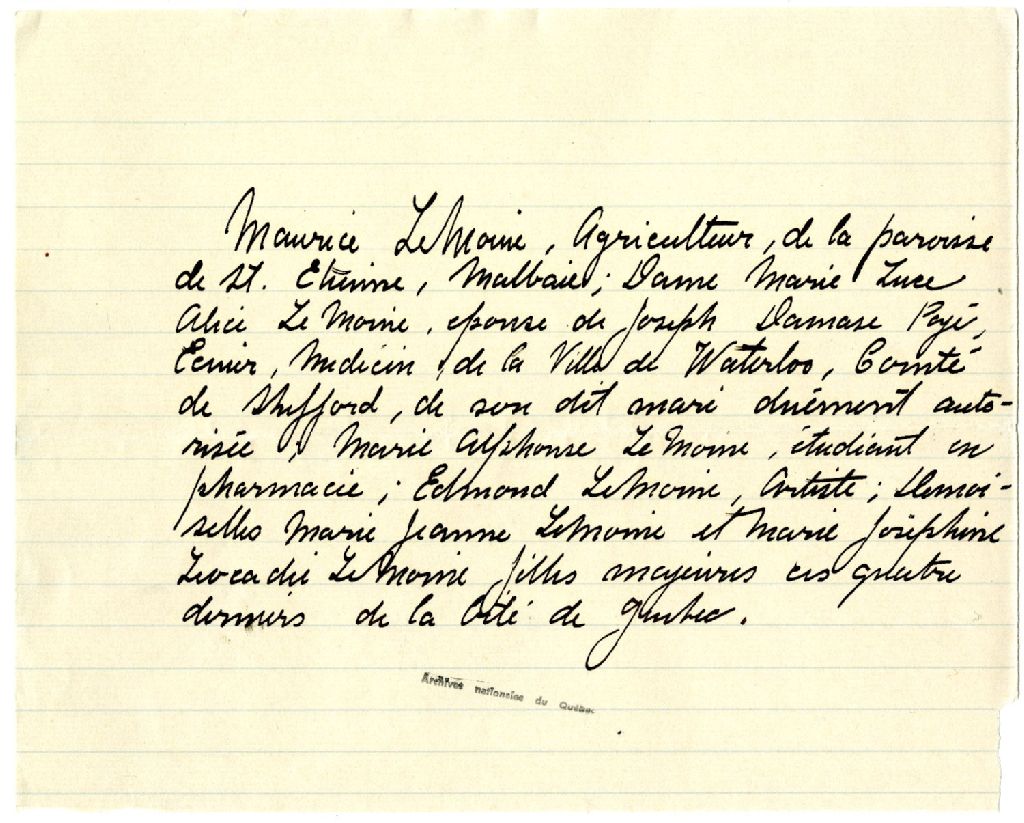 Maurice LeMoine, Agriculteur, de la paroisse
de St. Etienne, Malbaie; Dame Marie Luce
Alice LeMoine, epouse de Joseph Damase Pagé,
Ecuier, Medecin, de la Ville de Waterloo, Comté
de Shefford, de son dit mari duement auto-
risée; Marie Alphonse LeMoine, étudiant en
pharmacie; Edmond LeMoine, Artiste; Demoi-
selles Marie Jeanne LeMoine et Marie Joséphine
Leocadie LeMoine filles majeures ces quatre
derniers de la Cité de Quebec.
Archives nationales du Québec